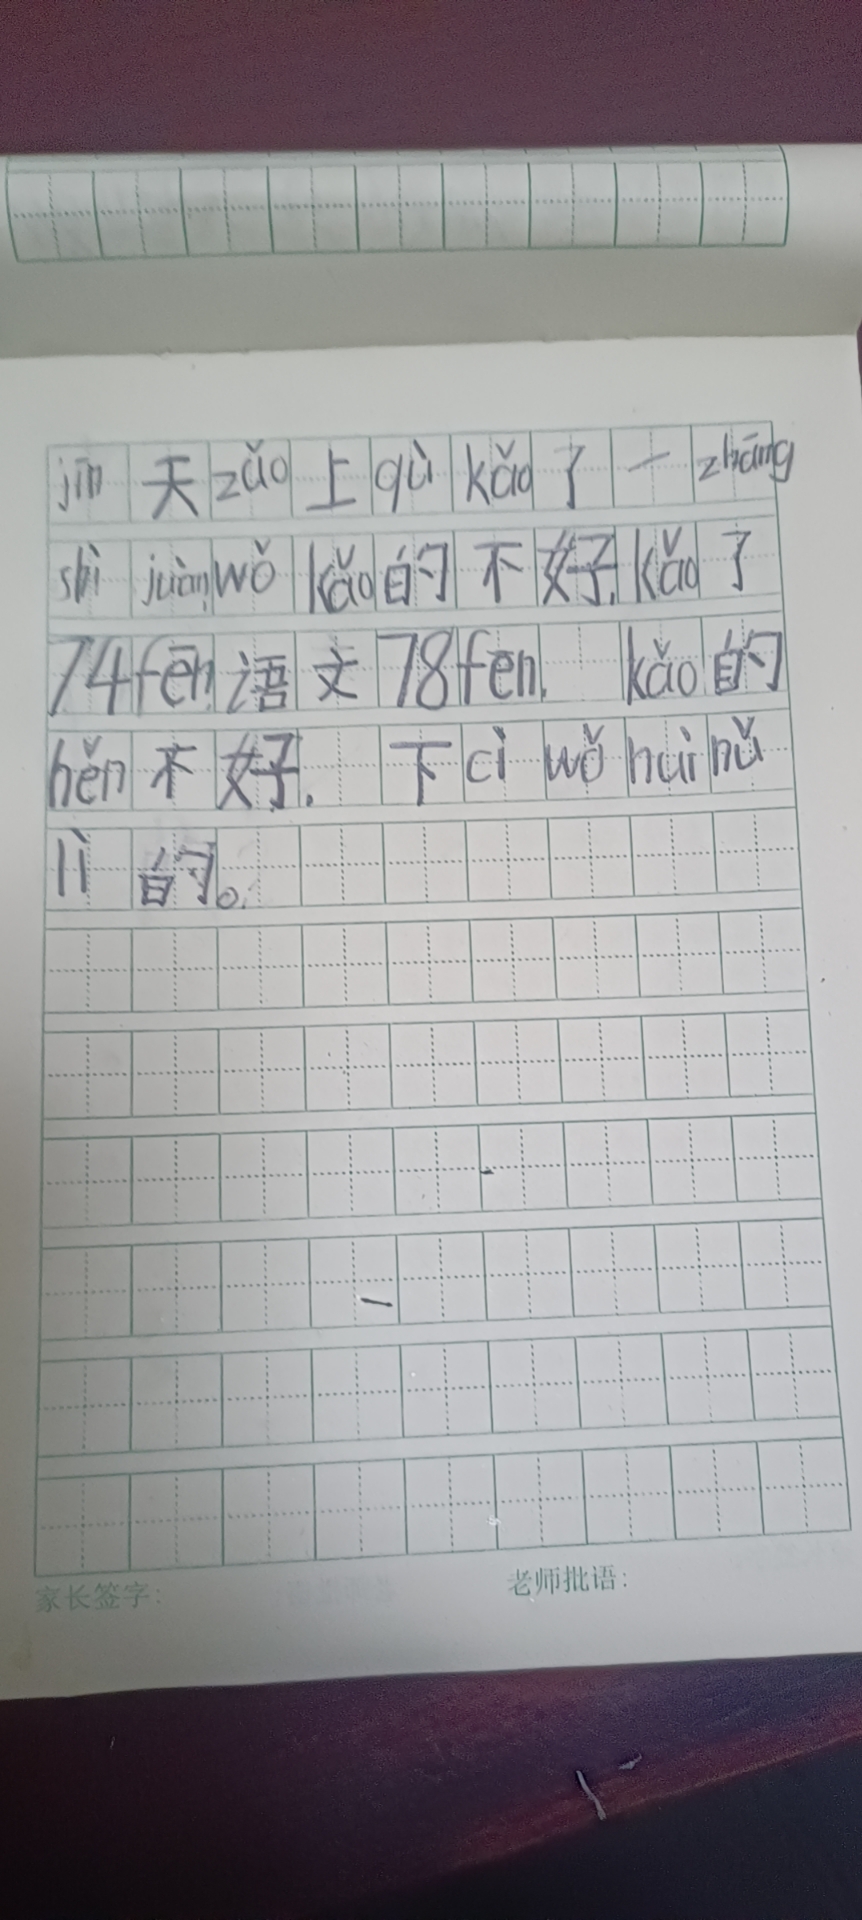 jīn天zǎo上qù kǎo了一zhāng
shì juàn,wǒ kǎo的不好,kǎo了
74fēn,语文78fēn. kǎo的
hěn不好. 下cì wǒ huì nǔ
lì的。
家长签字: 老师批语: